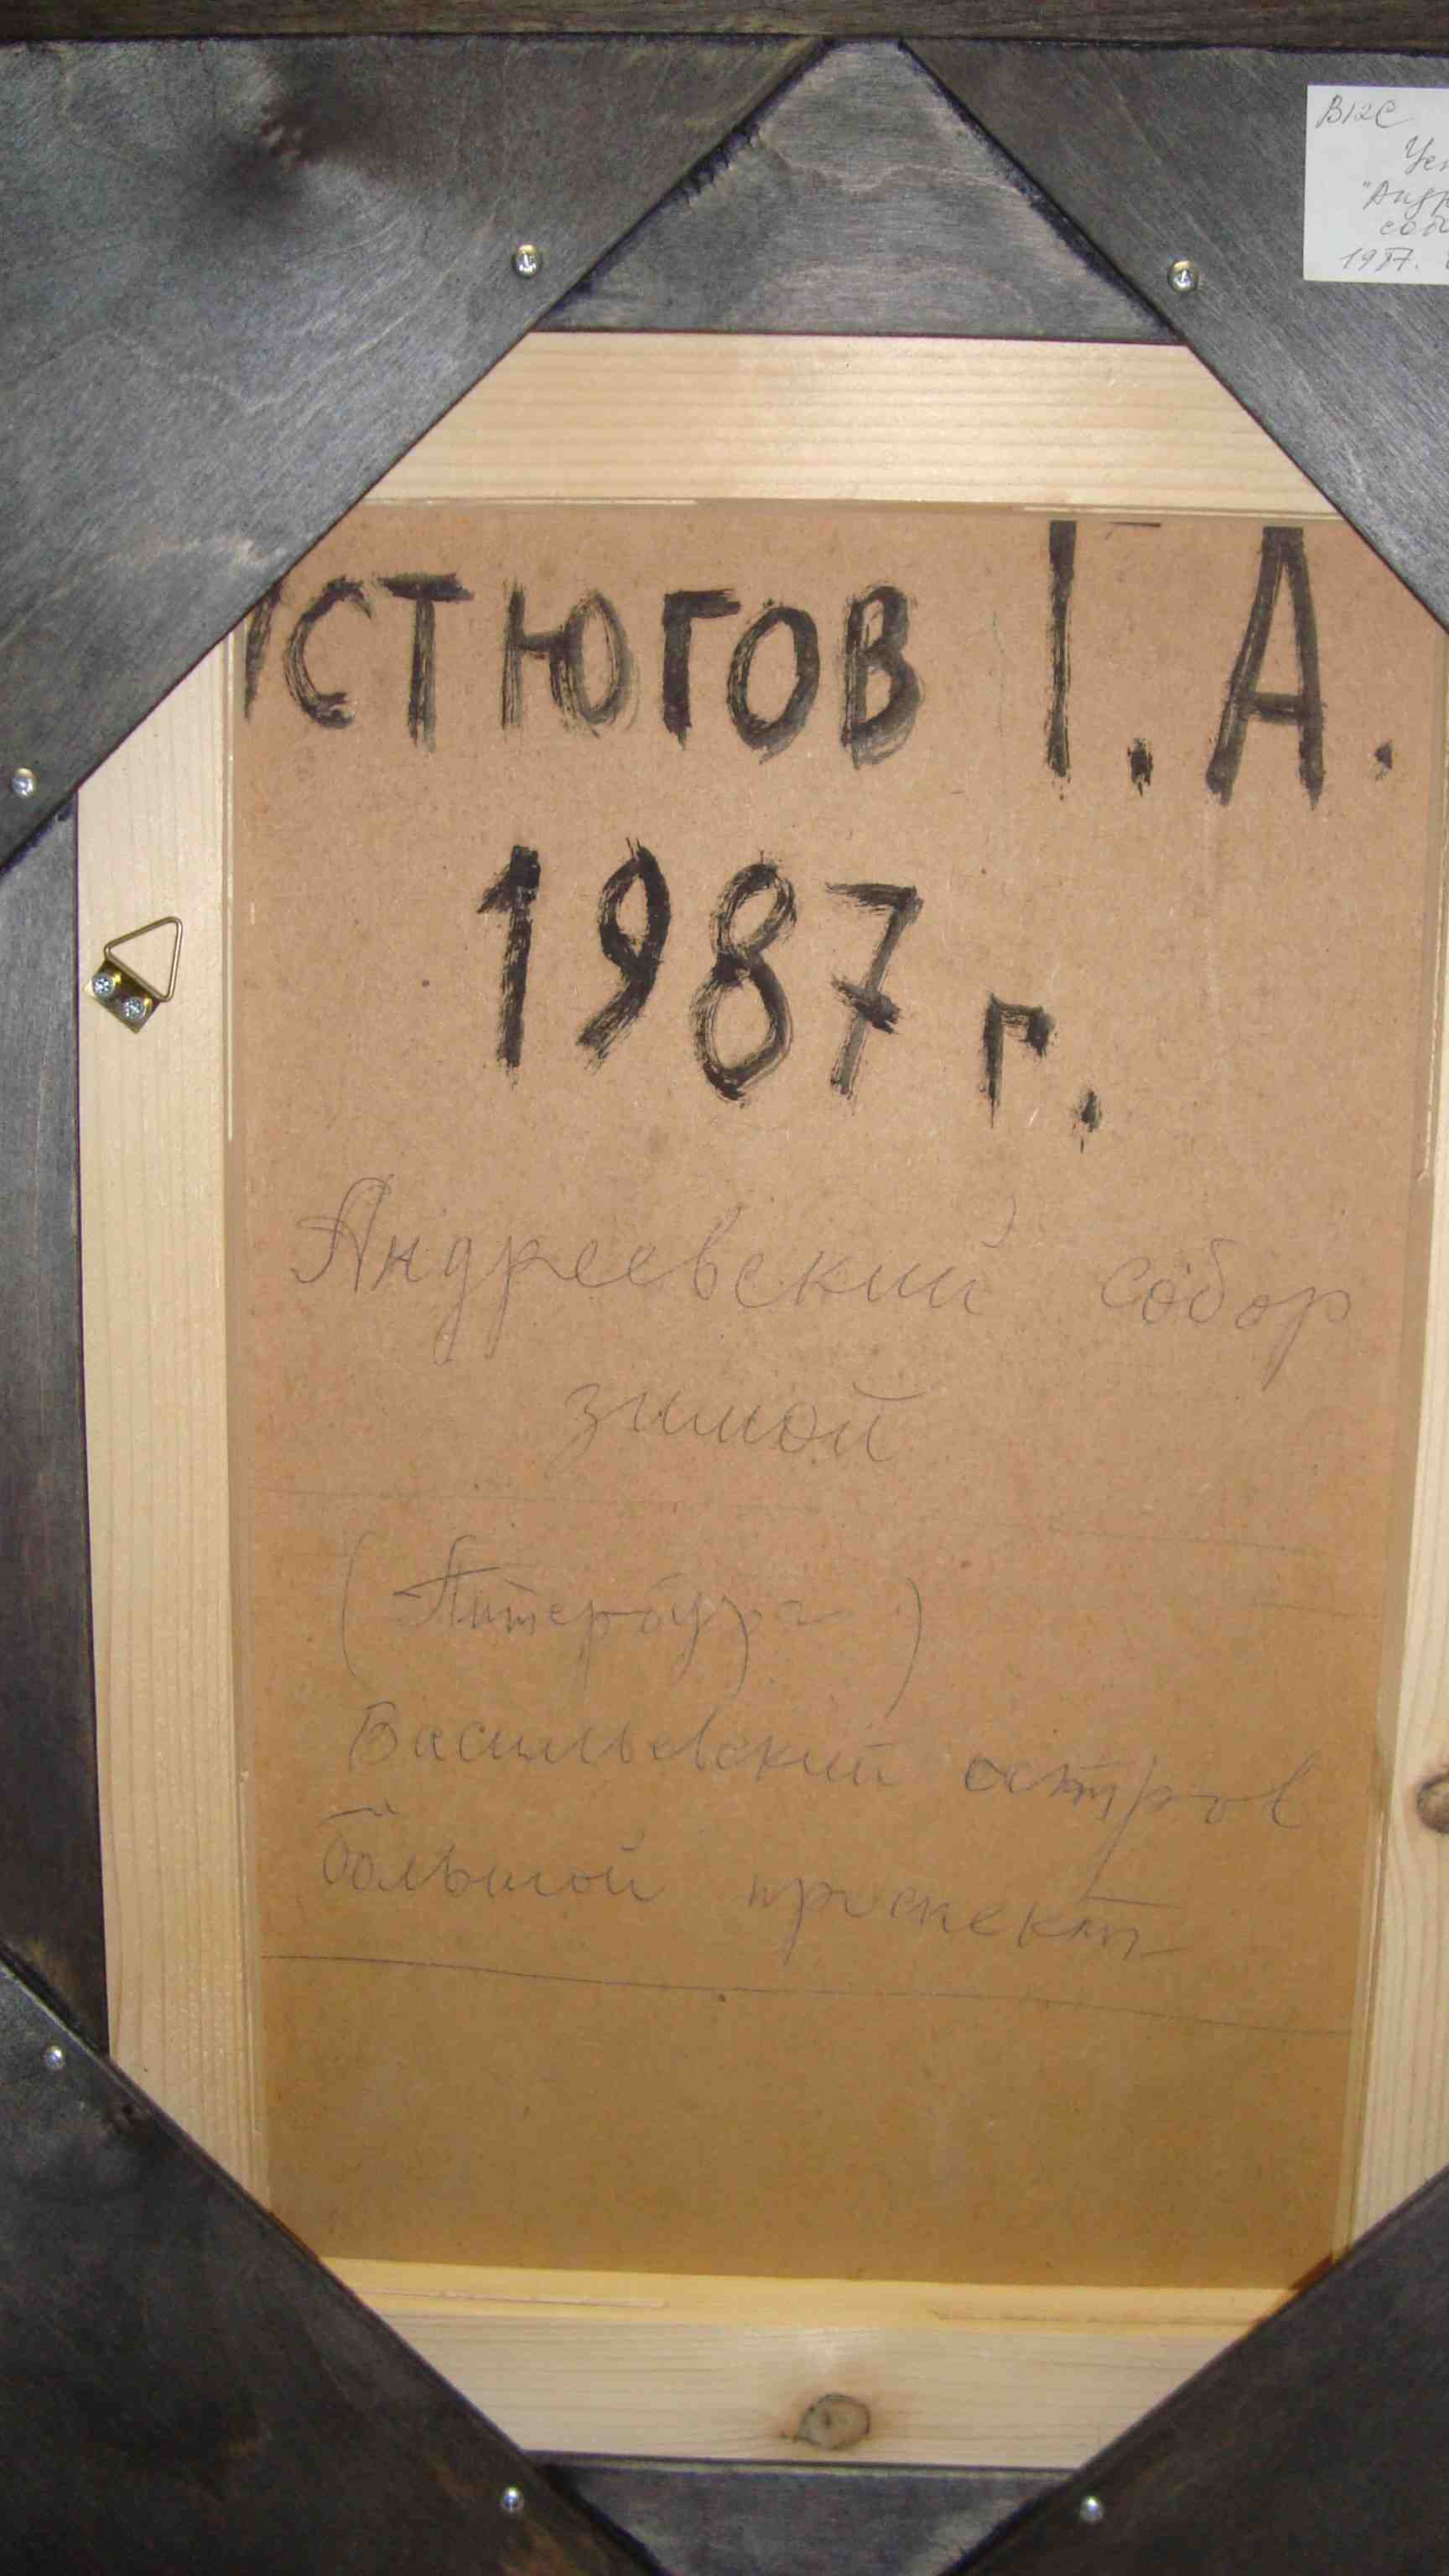 В12С
1987.
СТЮГОВ Г. А.
1987 г.
Андреевский собор
зимой
(Питербург)
Васильевский остров
большой проспект